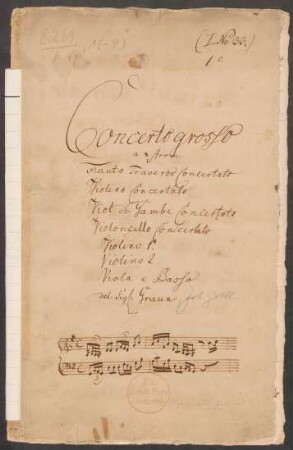 8269
1(-9)
(I. No 33.)
1c
Concerto grosso
Flauto Traverso Concertato
Violino Concertato
Viol di Gamba Concertato
Violoncello Concertato
Violino 1º
Violino 2
Viola e Basso
del Sigl. Graun